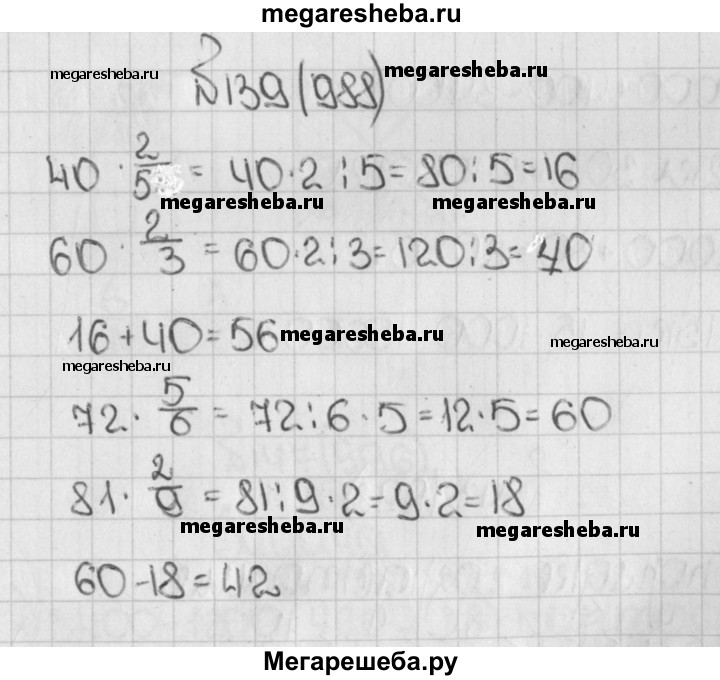 megaresheba.ru
№139(988)
megaresheba.ru megaresheba.ru
40 · 2/5 = 40·2:5=80:5=16
megaresheba.ru megaresheba.ru
60 · 2/3 = 60·2:3=120:3=40
16+40=56 megaresheba.ru megaresheba.ru
megaresheba.ru
72 · 5/6 = 72:6·5=12·5=60
81 · 2/9 = 81:9·2=9·2=18
megaresheba.ru megaresheba.ru
60-18=42
Мегарешеба.ру